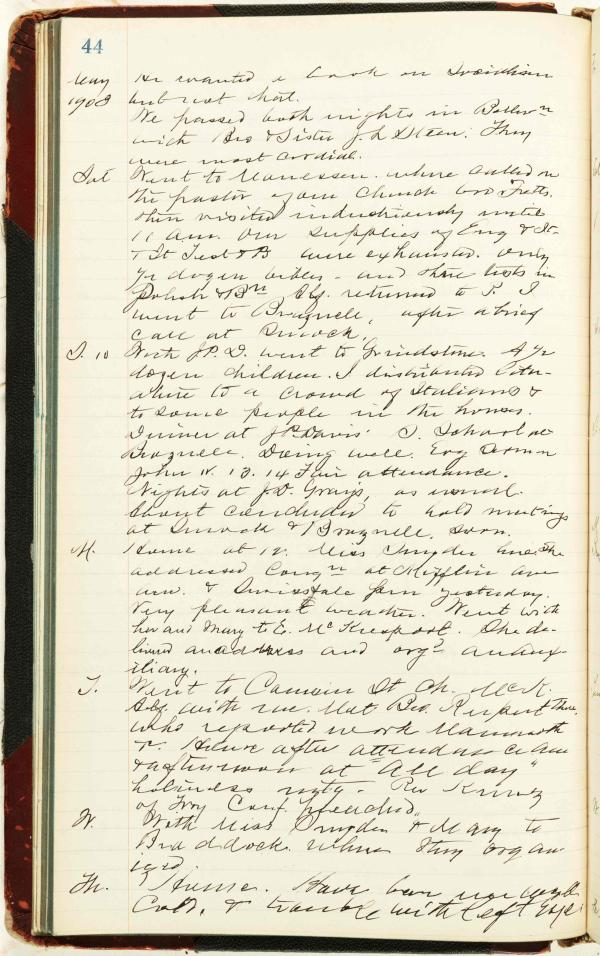 44
May He wanted a book on Socialism
1908 but not that.
We passed both nights in Bellevn
with Bro & Sister J. L. Steen. They
were most cordial.
Sat Went to Monessen. where called on
the pastor of our Church Bro Fretts.
then visited industriously until
11 am. Our supplies of Eng & It-
& It Test & B were exhausted. Only
½ dozen bibles - and three lots in
Polish & Bn Alf. returned to P. I
went to Braznell, after a brief
call at Dunock.
S. 10 With J.P.D. went to Grindstone. A ½
dozen children. I distributed liter-
ature to a crowd of Italians &
to some people in the houses.
Dinner at J.P. Davis' S. School at
Braznell. Doing well. Evg Sermon
John IV. 13. 14 Fair attendance.
Nights at J.D. Grays, as usual.
to hold meetings
at & Braznell. soon.
M. Home at 12. Miss Snyder here. She
addressed Congn at Mifflin ave
am. & Swissvale pm yesterday.
Very pleasant weather. Went with
her and Mary to E. McKeesport. She de-
livered an address and orgd an Aux-
iliary.
T. Went to St Ch. McK.
Alf with me. Met Bro. there.
who reported work
& afternoon at "All day"
holiness mtg. - Rev
of Conf. preached.
W. With Miss Snyder & Mary to
Braddock. where they organ
ized.
Th. Home. Have been
Cold, & trouble with left Eye